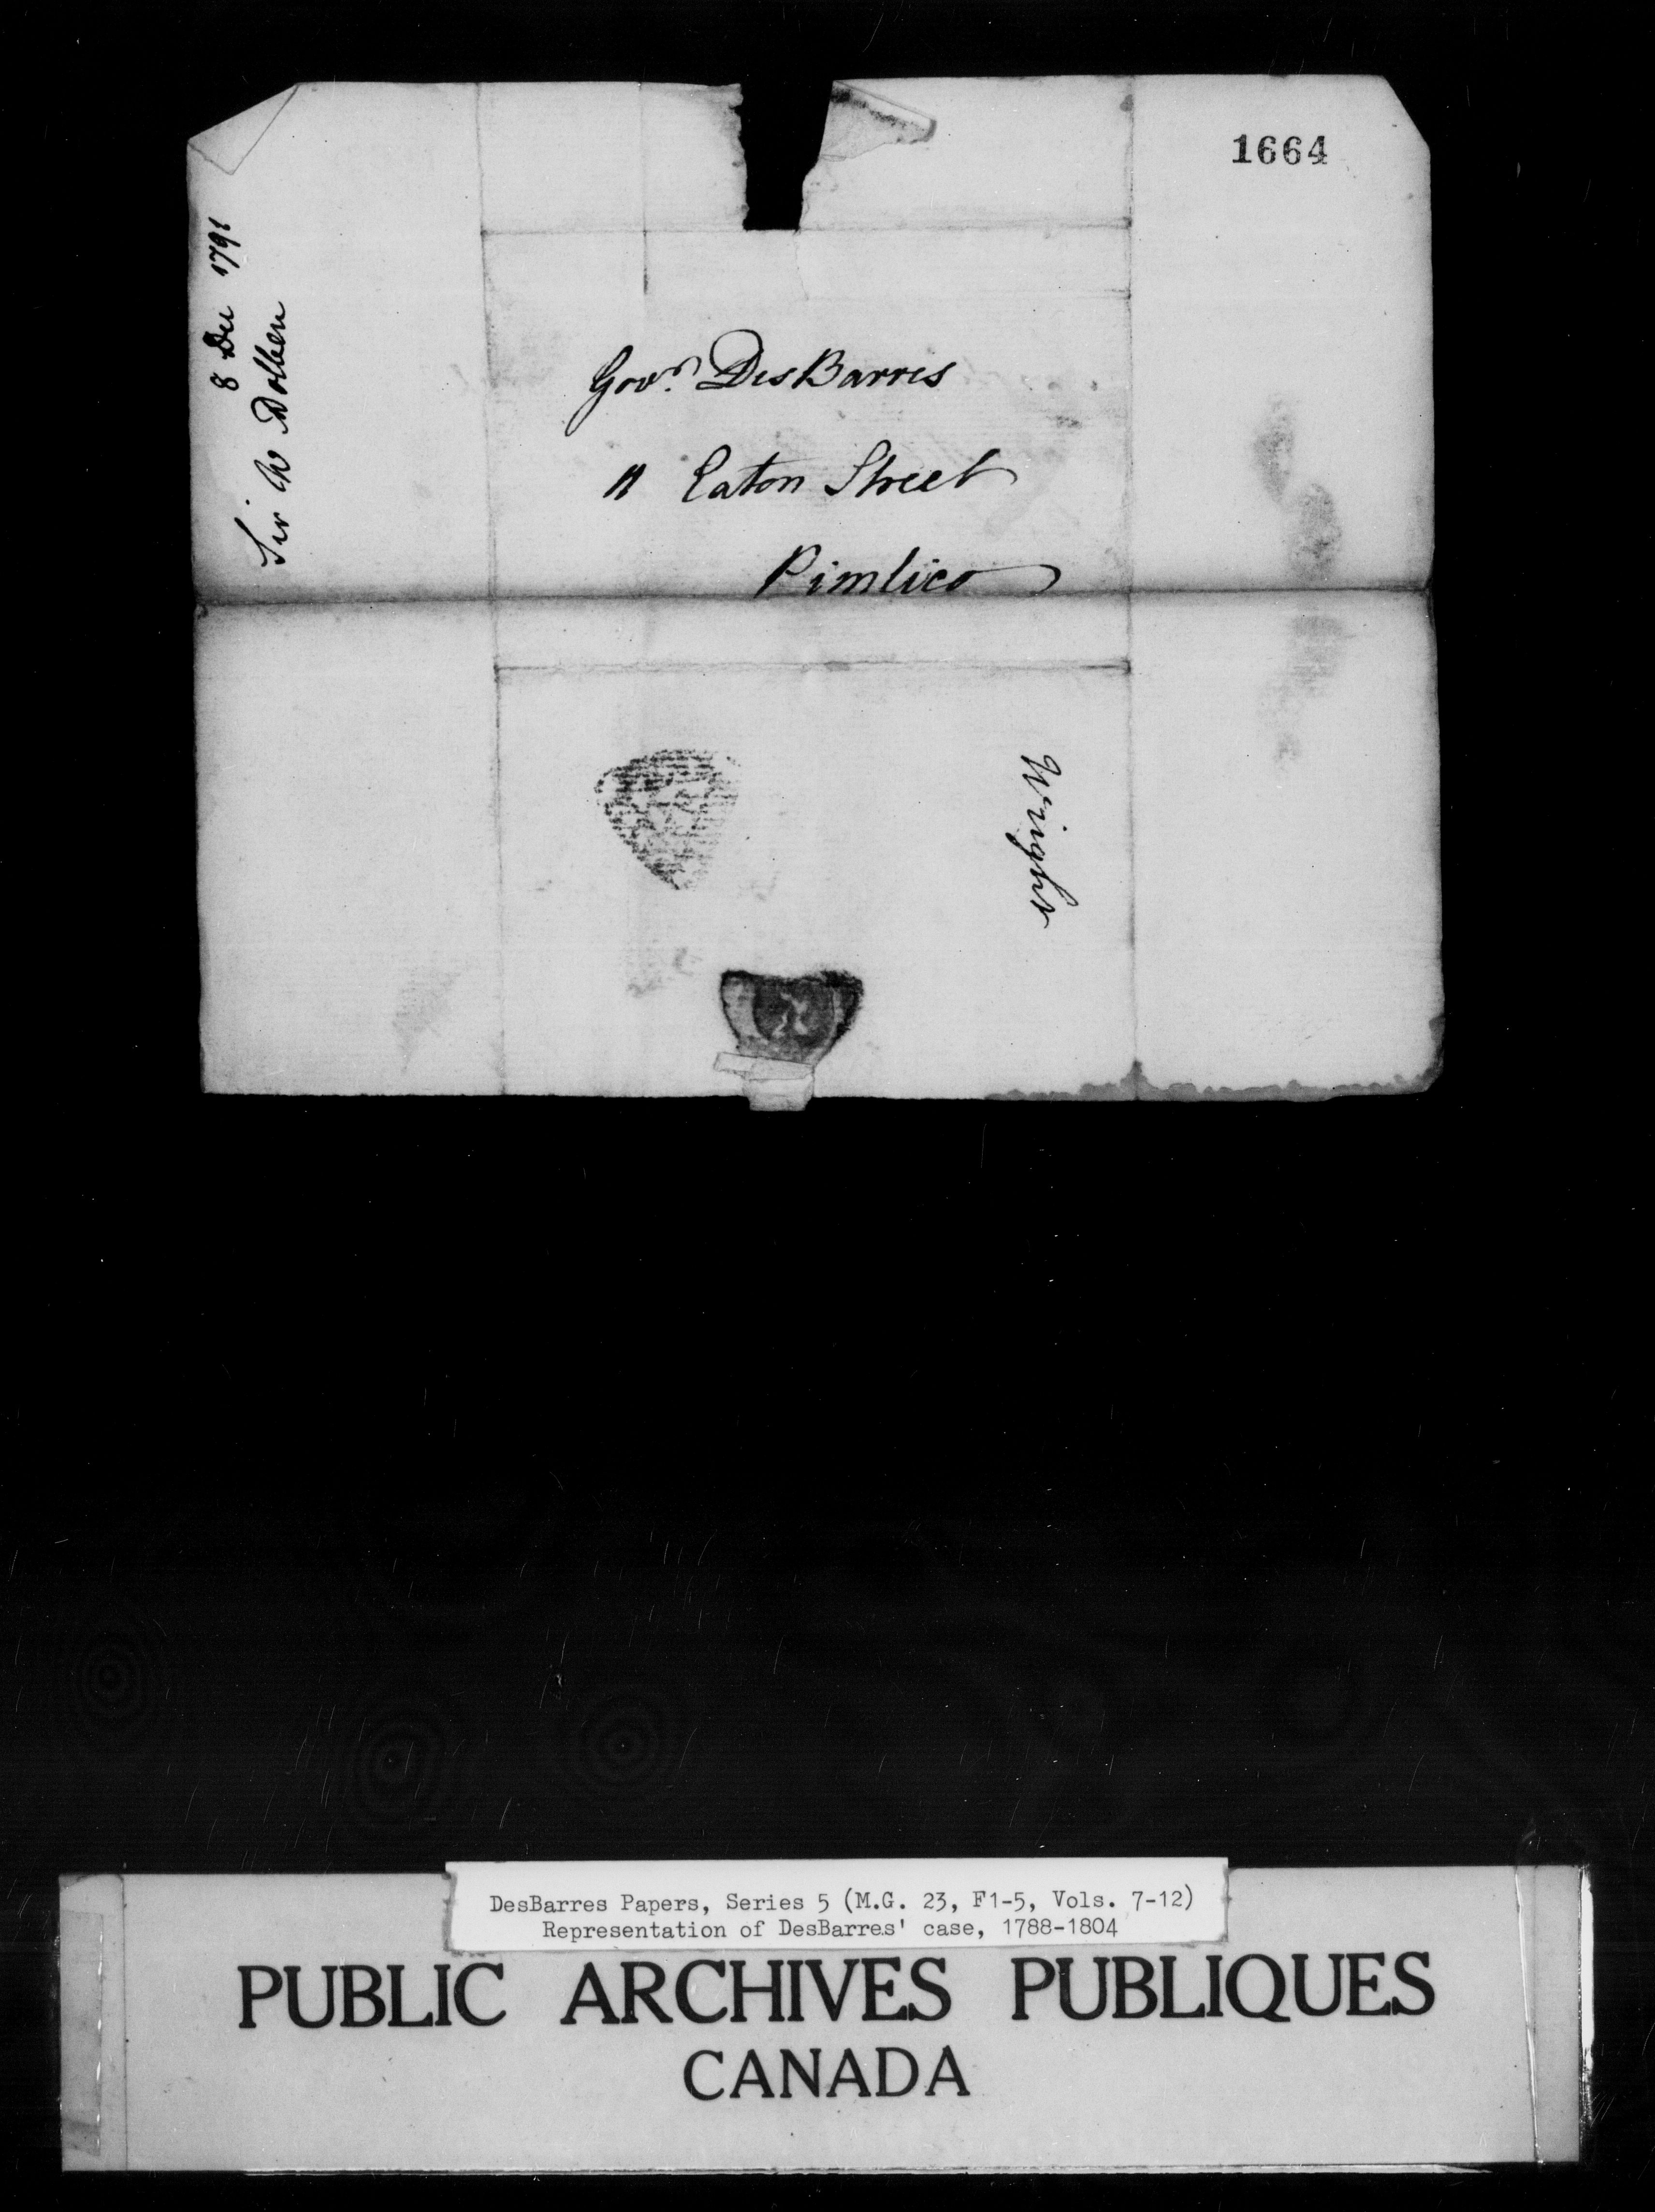 1664
8 Dec 1791
Sir W Dolben
Govr. DesBarres
11 Eaton Street
Pimlico
DesBarres Papers, Series 5 (M.G. 23, F1-5, Vols. 7-12)
Representation of DesBarres' case, 1788-1804
PUBLIC ARCHIVES PUBLIQUES
CANADA